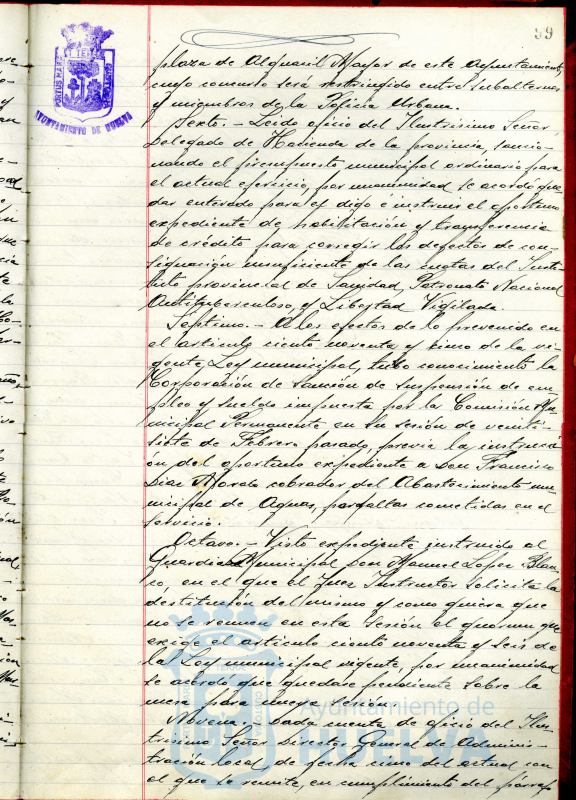 59
plaza de Alguacil Mayor de este Ayuntamiento,
cuyo concurso será restringido entre subalternos
y miembros de la Policía Urbana.
Sexto.- Leido oficio del Ilustrisimo Señor
Delegado de Hacienda de la provincia, sancio-
nando el presupuesto municipal ordinario para
el actual ejercicio, por unanimidad se acordó que-
dar enterado para el digo é instruir el oportuno
expediente de habilitación y transferencia
de crédito para corregir los defectos de con-
signación insuficiente de las cuotas del Insti-
tuto provincial de Sanidad, Patronato Nacional
Antituberculoso, y Libertad Vigilada.
Séptimo.- A los efectos de lo prevenido en
el articulo ciento noventa y cinco de la vi-
gente Ley municipal, tubo conocimiento la
Corporación de sanción de suspensión de em-
pleo y sueldo impuesta por la Comisión Mu-
nicipal Permanente en su sesión de veinti-
siete de Febrero pasado, previa la instrucci-
ón del oportuno expediente a Don Francisco
Diaz cobrador del Abastecimiento mu-
nicipal de Aguas, por faltas cometidas en el
servicio.
Octavo.- Visto expediente instruido al
Guardia Municipal Don Manuel Lopez Blan-
co, en el que el Juez Instructor solicita la
destitución del mismo y como quiera que
no se reunen en esta sesión el quorum que
exige el articulo ciento noventa y seis de
la Ley municipal vigente, por unanimidad
se acordó que quedase pendiente sobre la
mesa para nueva sesión.
Noveno.- Dada cuenta de oficio del Ilus-
trisimo Señor Director General de Adminis-
tración local de fecha cinco del actual con
el que se remite, en cumplimiento del párraf
AYUNTAMIENTO DE HUELVA
Ayuntamiento de
HUELVA